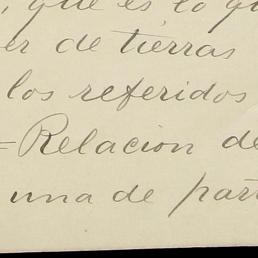 , que es lo qu
er de tierras
los referidos
=Relacion de
una de part